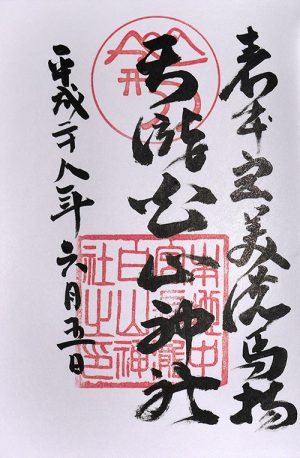 表本宮美濃馬場
長滝白山神社
平成二十八年六月五日
宮長瀧
白山神
社之印